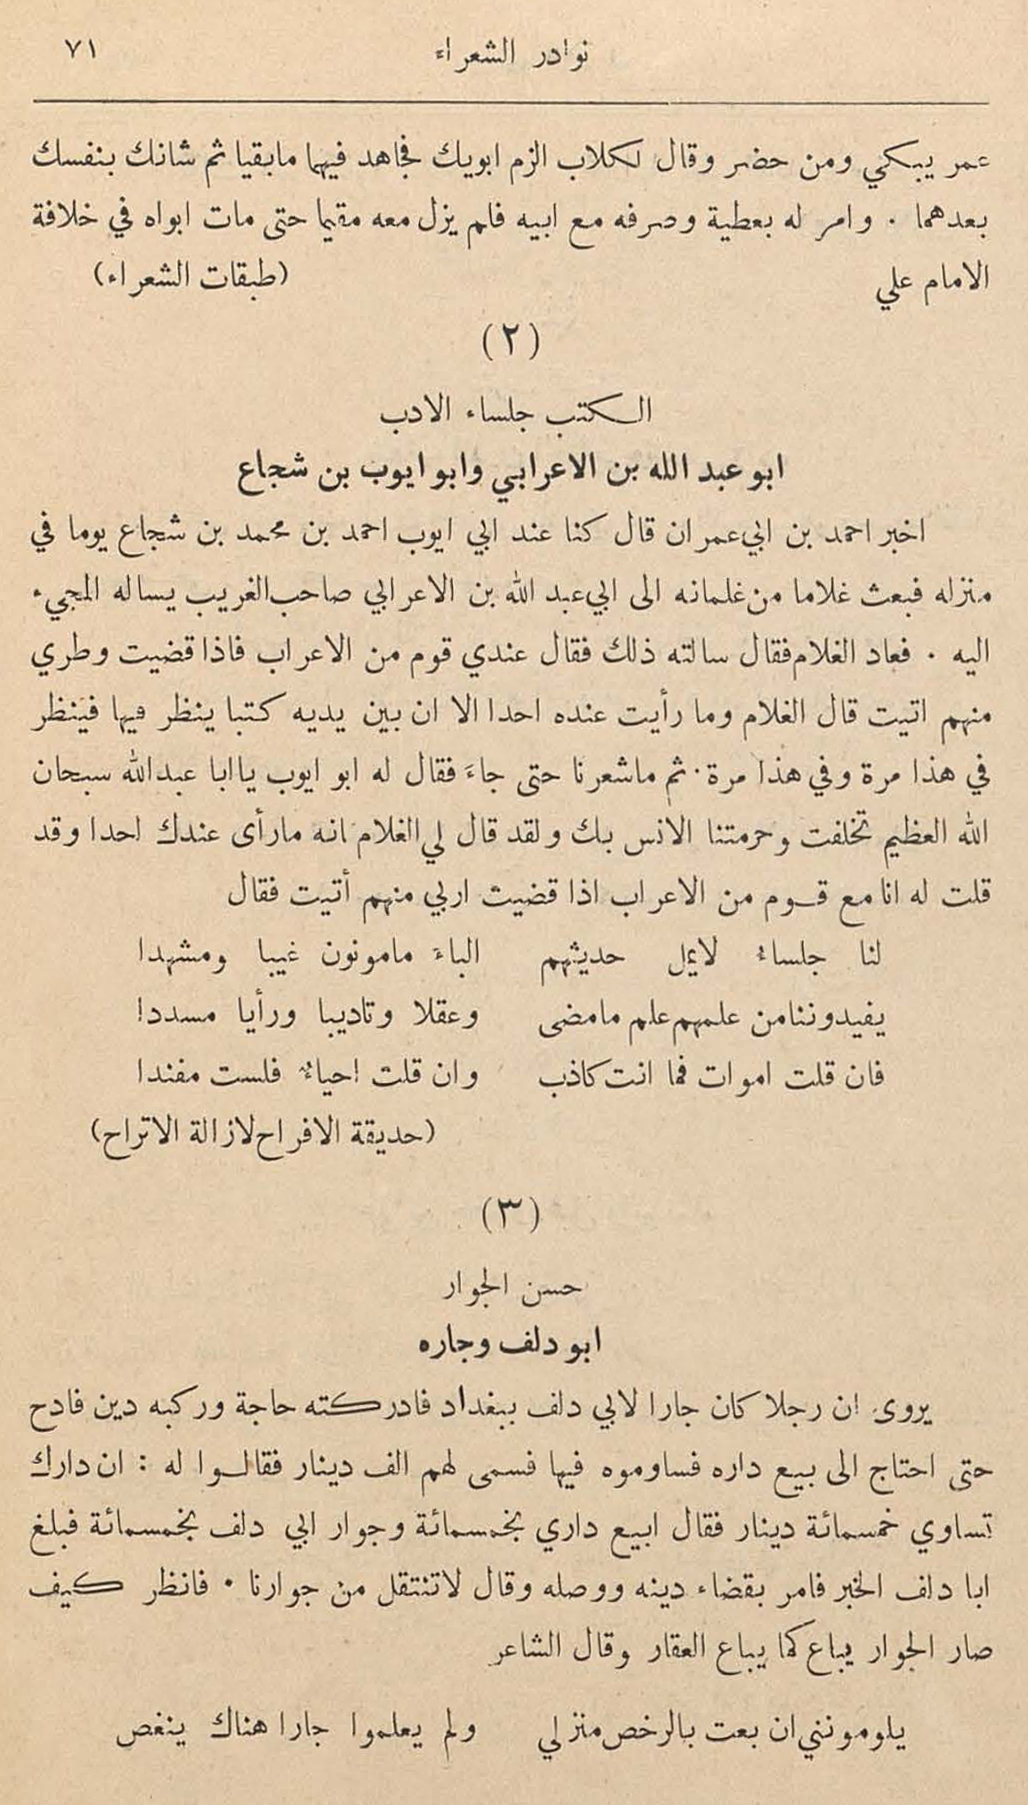 نوادر الشعراء ٧١
عمر يبكي ومن حضر وقال لكلاب الزم ابويك فجاهد فيهما مابقيا ثم شانك بنفسك
بعدهما . وامر له بعطية وصرفه مع ابيه فلم يزل معه مقيما حتى مات ابواه في خلافة
الامام علي (طبقات الشعراء)
(٢)
الكتب جلساء الادب
ابو عبد الله بن الاعرابي وابو ايوب بن شجاع
اخبر احمد بن ابي عمران قال كنا عند ابي ايوب احمد بن محمد بن شجاع يوما في
منزله فبعث غلاما من غلمانه الى ابي عبد الله بن الاعرابي صاحب الغريب يساله المجيء
اليه . فعاد الغلام فقال سالته ذلك فقال عندي قوم من الاعراب فاذا قضيت وطري
منهم اتيت قال الغلام وما رأيت عنده احدا الا ان بين يديه كتبا ينظر فيها فينظر
في هذا مرة وفي هذا مرة . ثم ماشعرنا حتى جاءَ فقال له ابو ايوب ياابا عبدالله سبحان
الله العظيم تخلفت وحرمتنا الانس بك ولقد قال لي الغلام انه مارأى عندك احدا وقد
قلت له انا مع قوم من الاعراب اذا قضيت اربي منهم أتيت فقال
لنا جلساءٌ لايمل حديثهم الباءَ مامونون غيبا ومشهدا
يفيدوننا من علمهم علم مامضى وعقلا وتاديبا ورأيا مسددا
فان قلت اموات فما انت كاذب وان قلت احياءٌ فلست مفندا
(حديقة الافراح لازالة الاتراح)
(٣)
حسن الجوار
ابو دلف وجاره
يروى ان رجلا كان جارا لابي دلف ببغداد فادركته حاجة وركبه دين فادح
حتى احتاج الى بيع داره فساوموه فيها فسمى لهم الف دينار فقالوا له : ان دارك
تساوي خمسمائة دينار فقال ابيع داري بخمسمائة وجوار ابي دلف بخمسمائة فبلغ
ابا دلف الخبر فامر بقضاء دينه ووصله وقال لاتنتقل من جوارنا . فانظر كيف
صار الجوار يباع كما يباع العقار وقال الشاعر
يلومونني ان بعت بالرخص منزلي ولم يعلموا جارا هناك ينغص